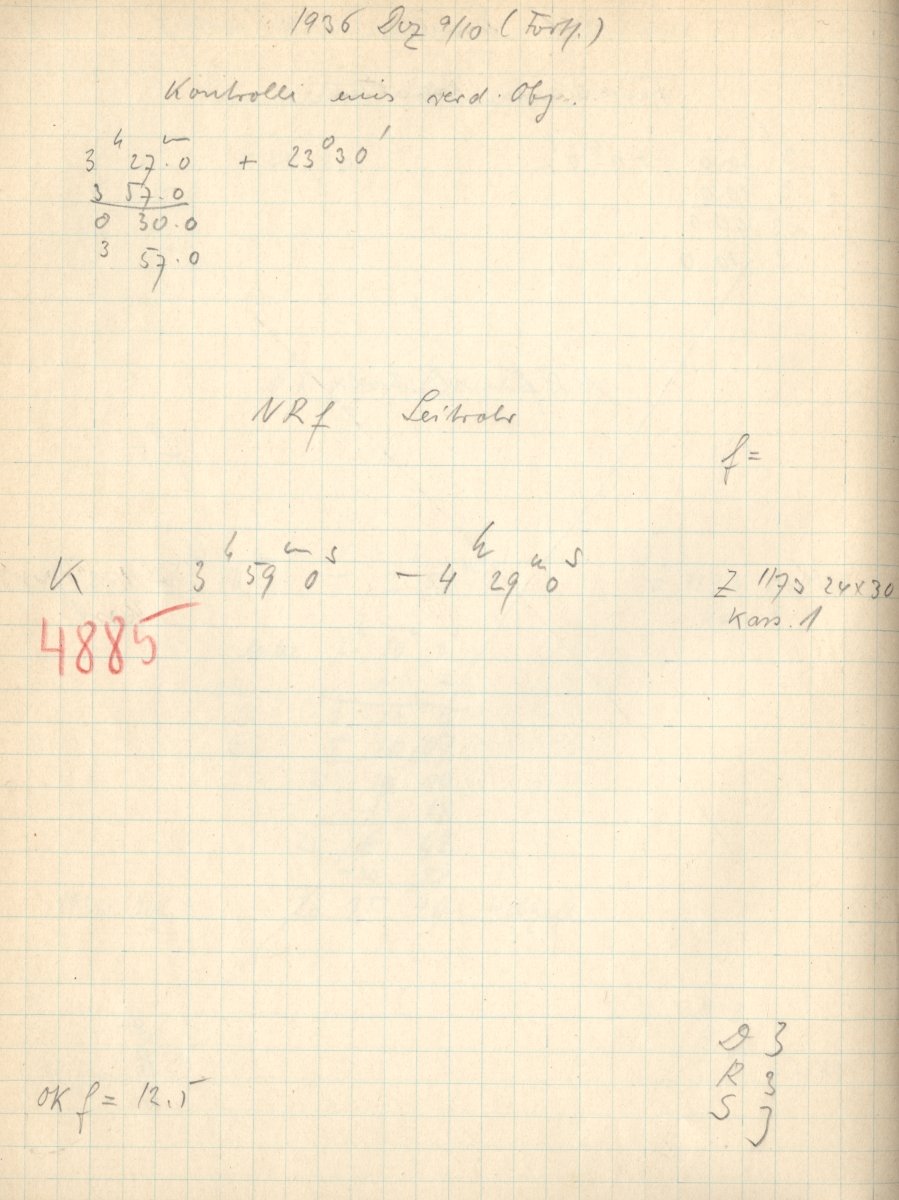 1936 Dez 9/10 (Forts.)
Kontrolle eines verd. Obj.
3ʰ 27ᵐ.0 + 23°30'
3 57.0
0 30.0
3 57.0
NRf Leitrohr
f =
K 3ʰ 59ᵐ 0ˢ – 4ʰ 29ᵐ 0ˢ
Z 1175 24x30
Kass. 1
4885
D 3
R 3
S 3
OK f = 12.5